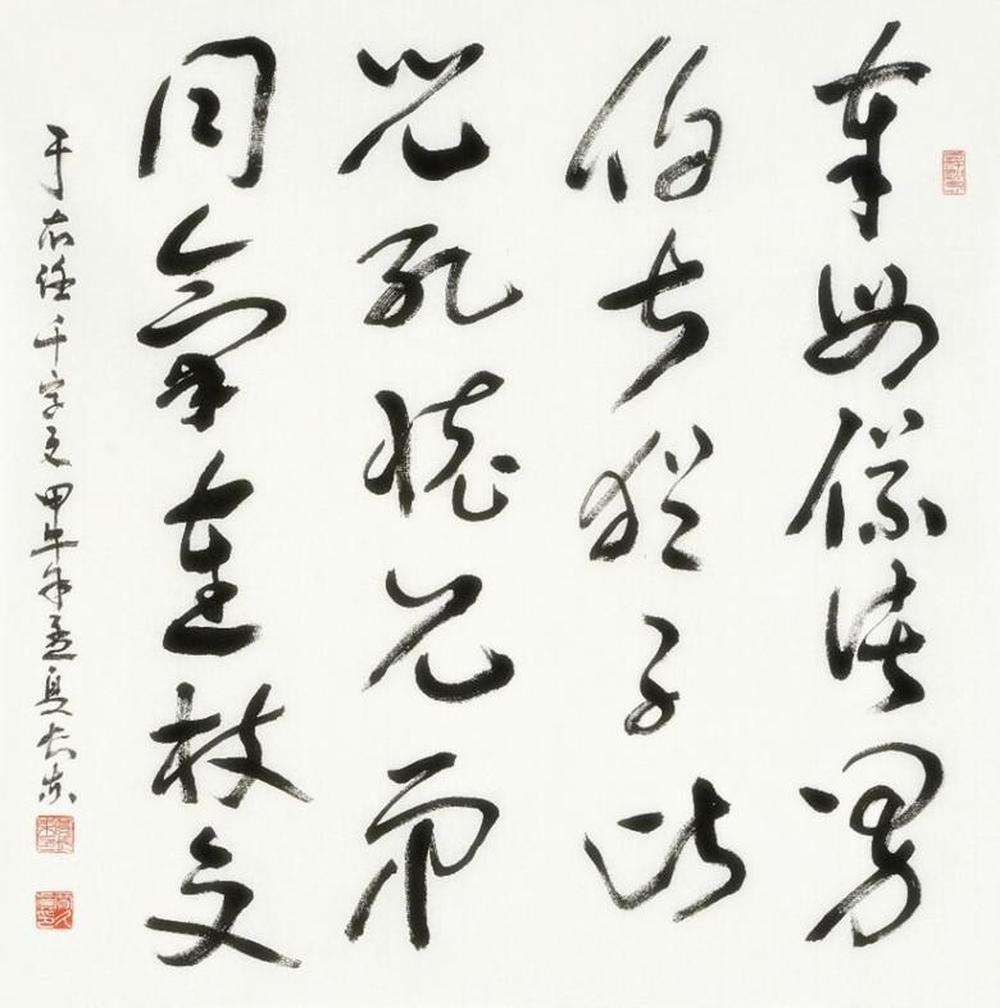 奉母儀諸姑
伯叔猶子比
兒孔懷兄弟
同氣連枝交
于右任千字文甲午年孟夏